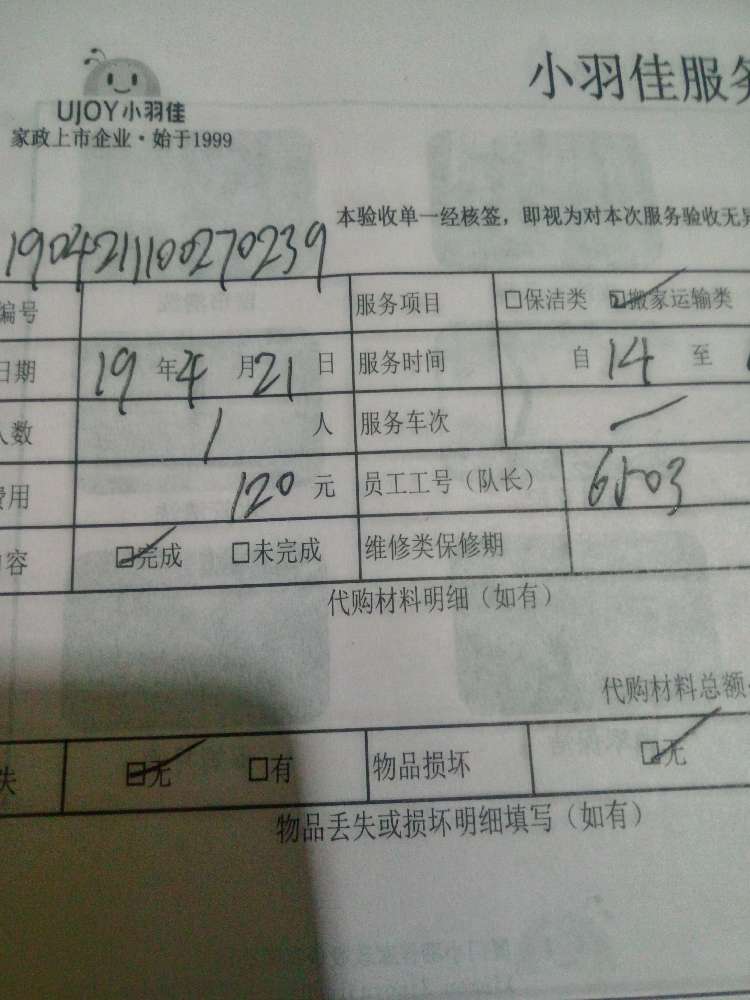 小羽佳服务
UJOY小羽佳
家政上市企业·始于1999
本验收单一经核签，即视为对本次服务验收无异
190421100270239
编号 服务项目 □保洁类 ☑搬家运输类
日期 19年4月21日 服务时间 自 14 至
人数 1 人 服务车次 —
费用 120 元 员工工号（队长） 6503
内容 ☑完成 □未完成 维修类保修期
代购材料明细（如有）
代购材料总额
失 ☑无 □有 物品损坏 ☑无
物品丢失或损坏明细填写（如有）